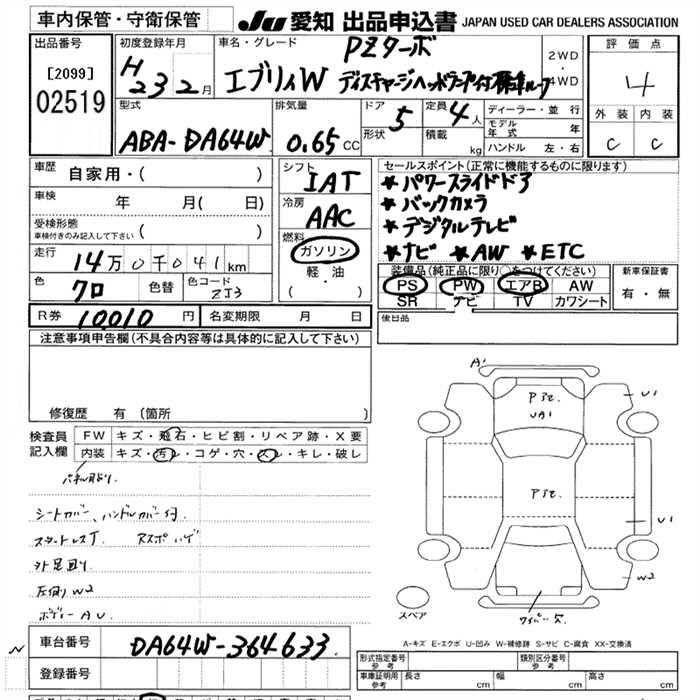 車内保管・守衛保管
JU 愛知 出品申込書 JAPAN USED CAR DEALERS ASSOCIATION
出品番号 [2099] 02519
初度登録年月 H 23 2月
車名・グレード PZターボ
エブリィW ディスチャージヘッドランプ付 標準ルーフ
2WD・4WD
評価点 4
外装 内装
C C
型式 ABA-DA64W
排気量 0.65 CC
ドア 5 形状
定員 4人 積載 kg
ディーラー・並行
モデル年式 年
ハンドル 左・右
車歴 自家用・( )
車検 年 月( 日)
受検形態 車検付きのみ記入して下さい ( )
走行 14万0千041km
色 クロ 色替 色コード ZJ3
シフト IAT
冷房 AAC
燃料 ガソリン 軽・油 ( )
セールスポイント(正常に機能するものに限ります)
★パワースライドドア
★バックカメラ
★デジタルテレビ
★ナビ ★AW ★ETC
装備品(純正品に限り○をつけてください)
PS PW エアB AW
SR ナビ TV カワシート
新車保証書 有・無
R券 10010円 名変期限 月 日
後日品
注意事項申告欄(不具合内容等は具体的に記入して下さい)
修復歴 有(箇所 )
検査員記入欄
FW キズ・飛石・ヒビ割・リペア跡・X要
内装 キズ・汚レ・コゲ・穴・スレ・キレ・破レ
パネル貼り
シートカバー、ハンドルカバー付
外足回り
左側 W2
ボディー AU
A1
Pヌビ. UA1
U1
Pヌビ.
U1
W2
ワイパーX
スペア
A-キズ E-エクボ U-凹み W-補修跡 S-サビ C-腐食 XX-交換済
N 車台番号 DA64W-364633
登録番号
形式指定番号 参考 類別区分番号 参考
車庫証明用 参考 長さ cm 幅 cm 高さ cm